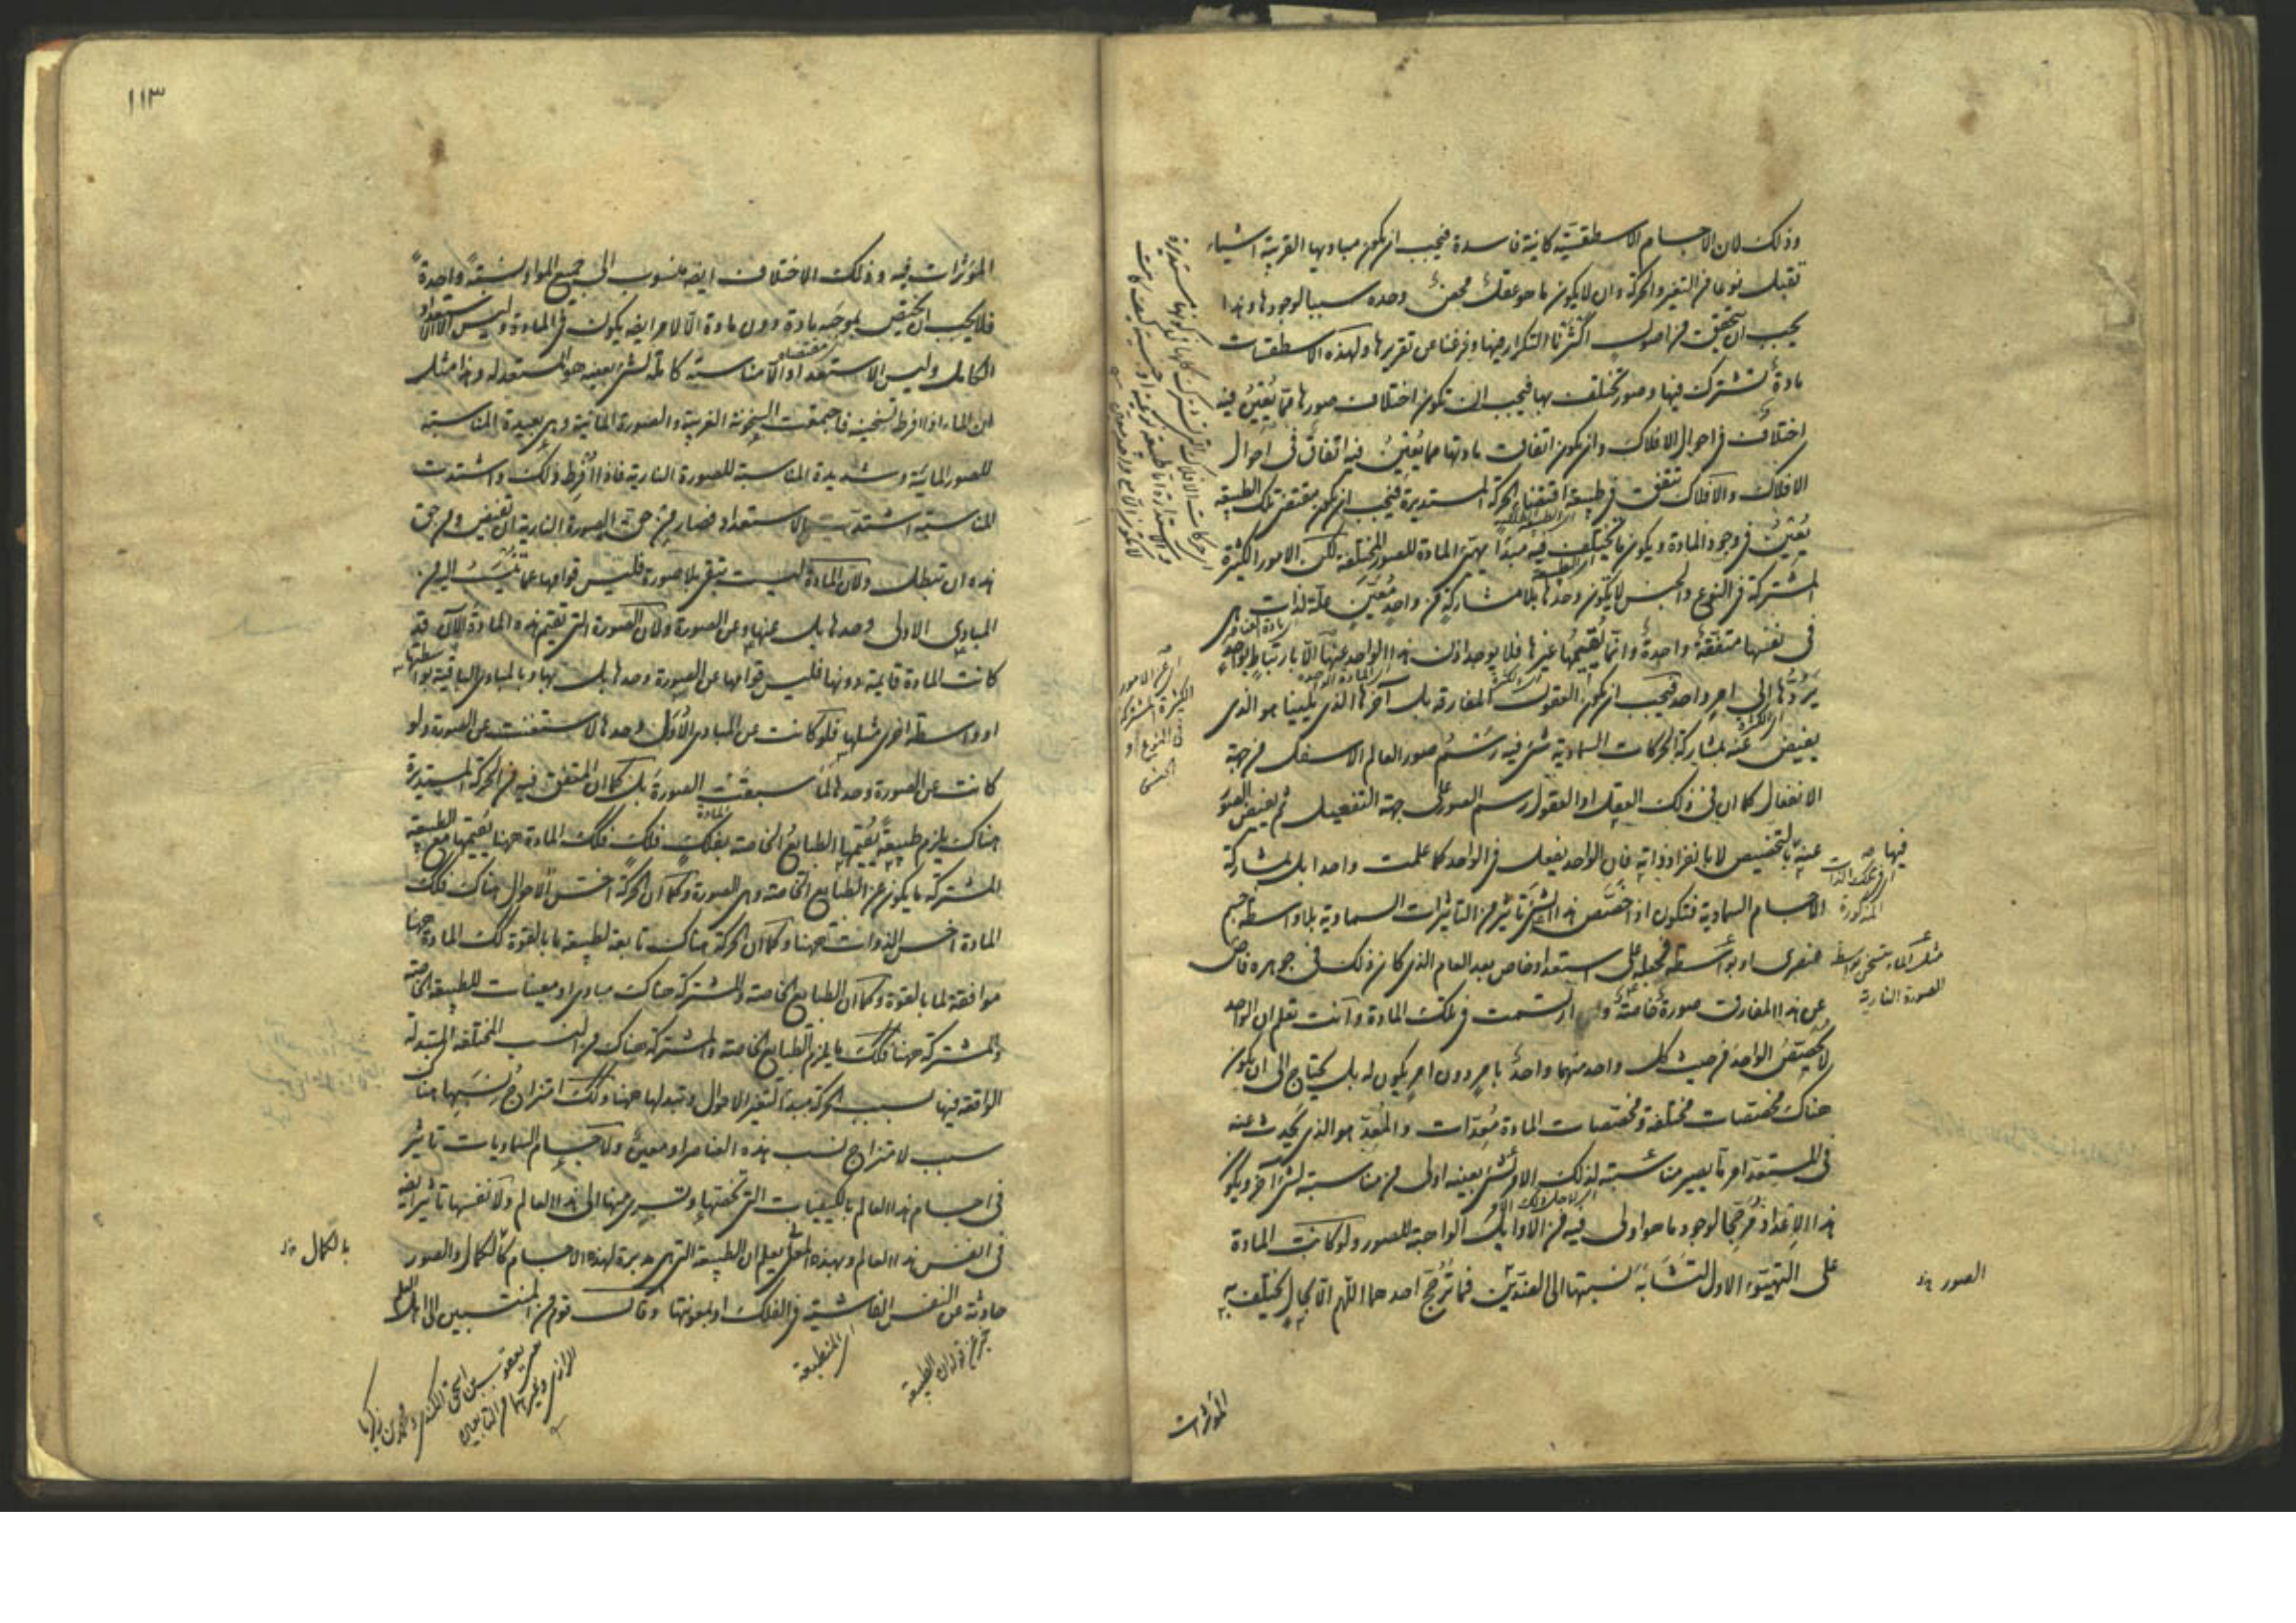 وذلك لان الاجسام الاسطقسية كائنة فاسدة فيجب ان يكون مباديها القريبة اشياء
تقبل نوعا من التغير والحركة وان لا يكون ما هو عقل محض وحده سببا لوجودها وهذا
يجب ان يتحقق من اصول اكثرنا التكرار فيها وفرغنا عن تقريرها ولهذه الاسطقسات
مادة تشترك فيها وصور تختلف بها فيجب ان تكون اختلاف صورها مما يعين فيه
اختلاف في احوال الافلاك وان يكون اتفاق مادتها مما يعين فيه اتفاق في احوال
الافلاك والافلاك تتفق في طبيعة اقتضاء الحركة المستديرة فيجب ان يكون مقتضى تلك الطبيعة
يعين في وجود المادة ويكون ما يختلف فيه مبدأ تهيئ المادة للصور المختلفة لكن الامور الكثيرة
المشتركة في النوع والجنس لا يكون وحدها بلا مشاركة من واحد معين علة لذات هي
في نفسها متفقة واحدة وانما يقيمها غيرها فلا يوجد اذن هذا الواحد عنها الا بارتباط بواحد
يردها الى امر واحد فيجب ان يكون العقول المفارقة بل آخرها الذي يلينا هو الذي
يفيض عنه بمشاركة الحركات السماوية شئ فيه رسم صور العالم الاسفل من جهة
الانفعال كما ان في ذلك العقل او العقول رسم الصور على جهة التفعيل ثم يفيض الصور
عنه بالتخصيص لا بانفراد ذاته فان الواحد يفعل في الواحد كما علمت واحدا بل بمشاركة
الاجسام السماوية فتكون اذا خصص هذا الشئ تاثير من التاثيرات السماوية بلا واسطة جسم
عنصرى او بواسطة فجعله على استعداد خاص بعد العام الذي كان ذلك في جوهره فاض
عن هذا المفارق صورة خاصة وارتسمت في تلك المادة وانت تعلم ان الواحد
لا يخصص الواحد من حيث كل واحد منهما واحد بامر دون امر يكون له بل يحتاج الى ان يكون
هناك مخصصات مختلفة ومخصصات المادة معدات والمعد هو الذي يحدث عنه
في المستعد امر ما يصير مناسبته لذلك الامر لشئ بعينه اولى من مناسبته لشئ آخر ويكون
هذا الاعداد مرجحا لوجود ما هو اولى فيه من الاوايل الواهبة للصور ولو كانت المادة
على التهيئ الاول لتشابه نسبتها الى الضدين فما ترجح احدهما اللهم الا بحال يختلف به
فيها
المذكورة
مثل الماء يتسخن بواسطة
الصورة النارية
الصور
الكثيرة المشتركة
في النوع او
الجنس
المؤثرات
١١٣
المؤثرات فيه وذلك الاختلاف ايضا منسوب الى جميع المواد نسبة واحدة
فلا يجب ان يختص بموجبه مادة دون مادة الا لامر ايضا يكون في المادة وليس الا الاستعداد
الكامل وليس الاستعداد الا مناسبة كاملة لشئ بعينه هو المستعد له وهذا مثل
ان الماء اذا افرط تسخينه فاجتمعت السخونة الغريبة والصورة المائية وهي بعيدة المناسبة
للصور المائية وشديدة المناسبة للصورة النارية فاذا افرط ذلك واشتدت
المناسبة اشتد الاستعداد فصار من حق الصورة النارية ان تفيض ومن حق
هذه ان تبطل ولان المادة ليست تبقى بلا صورة فليس قوامها عما ينسب اليه من
المبادي الاولى وحدها بل عنها وعن الصورة ولان الصورة التي تقيم هذه المادة الآن قد
كانت المادة قائمة دونها فليس قوامها عن الصورة وحدها بل بها وبالمبادي الباقية بواسطتها
او واسطة اخرى مثلها فلو كانت عن المبادي الاول وحدها لاستغنت عن الصورة ولو
كانت عن الصورة وحدها لما سبقت الصورة بل كما ان المتفق فيه من الحركة المستديرة
هناك يلزم طبيعة يقيمها الطبايع الخاصة بفلك فلك فكذلك المادة ههنا يقيمها مع الطبيعة
المشتركة ما يكون عن الطبايع الخاصة وهي الصورة وكما ان الحركة اخس الاحوال هناك فكذلك
المادة اخس الذوات ههنا وكما ان الحركة هناك تابعة لطبيعة ما بالقوة كذلك المادة ههنا
موافقة لما بالقوة وكما ان الطبايع الخاصة والمشتركة هناك مبادى او معينات للطبيعة الخاصة
والمشتركة ههنا فكذلك ما يلزم الطبايع الخاصة والمشتركة هناك من النسب المختلفة المتبدلة
الواقعة فيها بسبب الحركة مبدأ لتغير الاحوال وتبدلها ههنا وكذلك امتزاج نسبها هناك
سبب لامتزاج نسب هذه العناصر او معين ولاجسام السماويات تاثير
في اجسام هذا العالم بالكيفيات التي تخصها وتسرى منها الى هذا العالم ولانفسها تاثير ايضا
في انفس هذا العالم وبهذه المعانى يعلم ان الطبيعة التي هي مدبرة لهذه الاجسام كالكمال والصور
حادثة عن النفس الفاشية في الفلك او بمعونتها وقال قوم من المنتسبين الى اهل العلم
بالكمال
خبر عن قوله ان الطبيعة
اى المنطبعة
يعقوب بن اسحق الكندى ومحمد بن زكريا
الرازى وغيرهما من